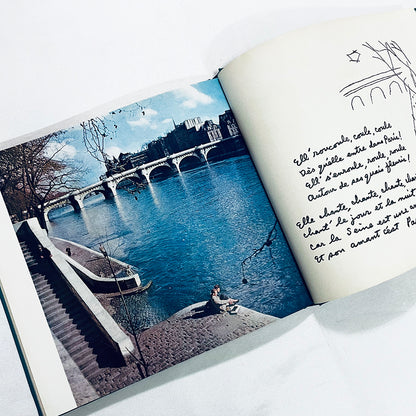 Ell' roucoule, coule, coule
Dès qu'elle entre dans Paris!
Ell' s'enroule, roule, roule
Autour de ses quais fleuris!
Elle chante, chante, chant, cha
Chant' le jour et la nuit
Car la Seine est une am
Et son amant c'est Pa